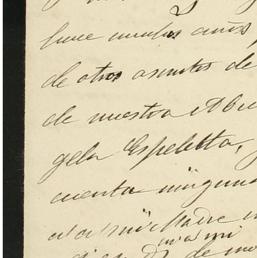 hace muchos años
de otros asuntos de
de nuestra Abu
gela Espeletta,
cuenta ninguna
mi Madre
mi
de